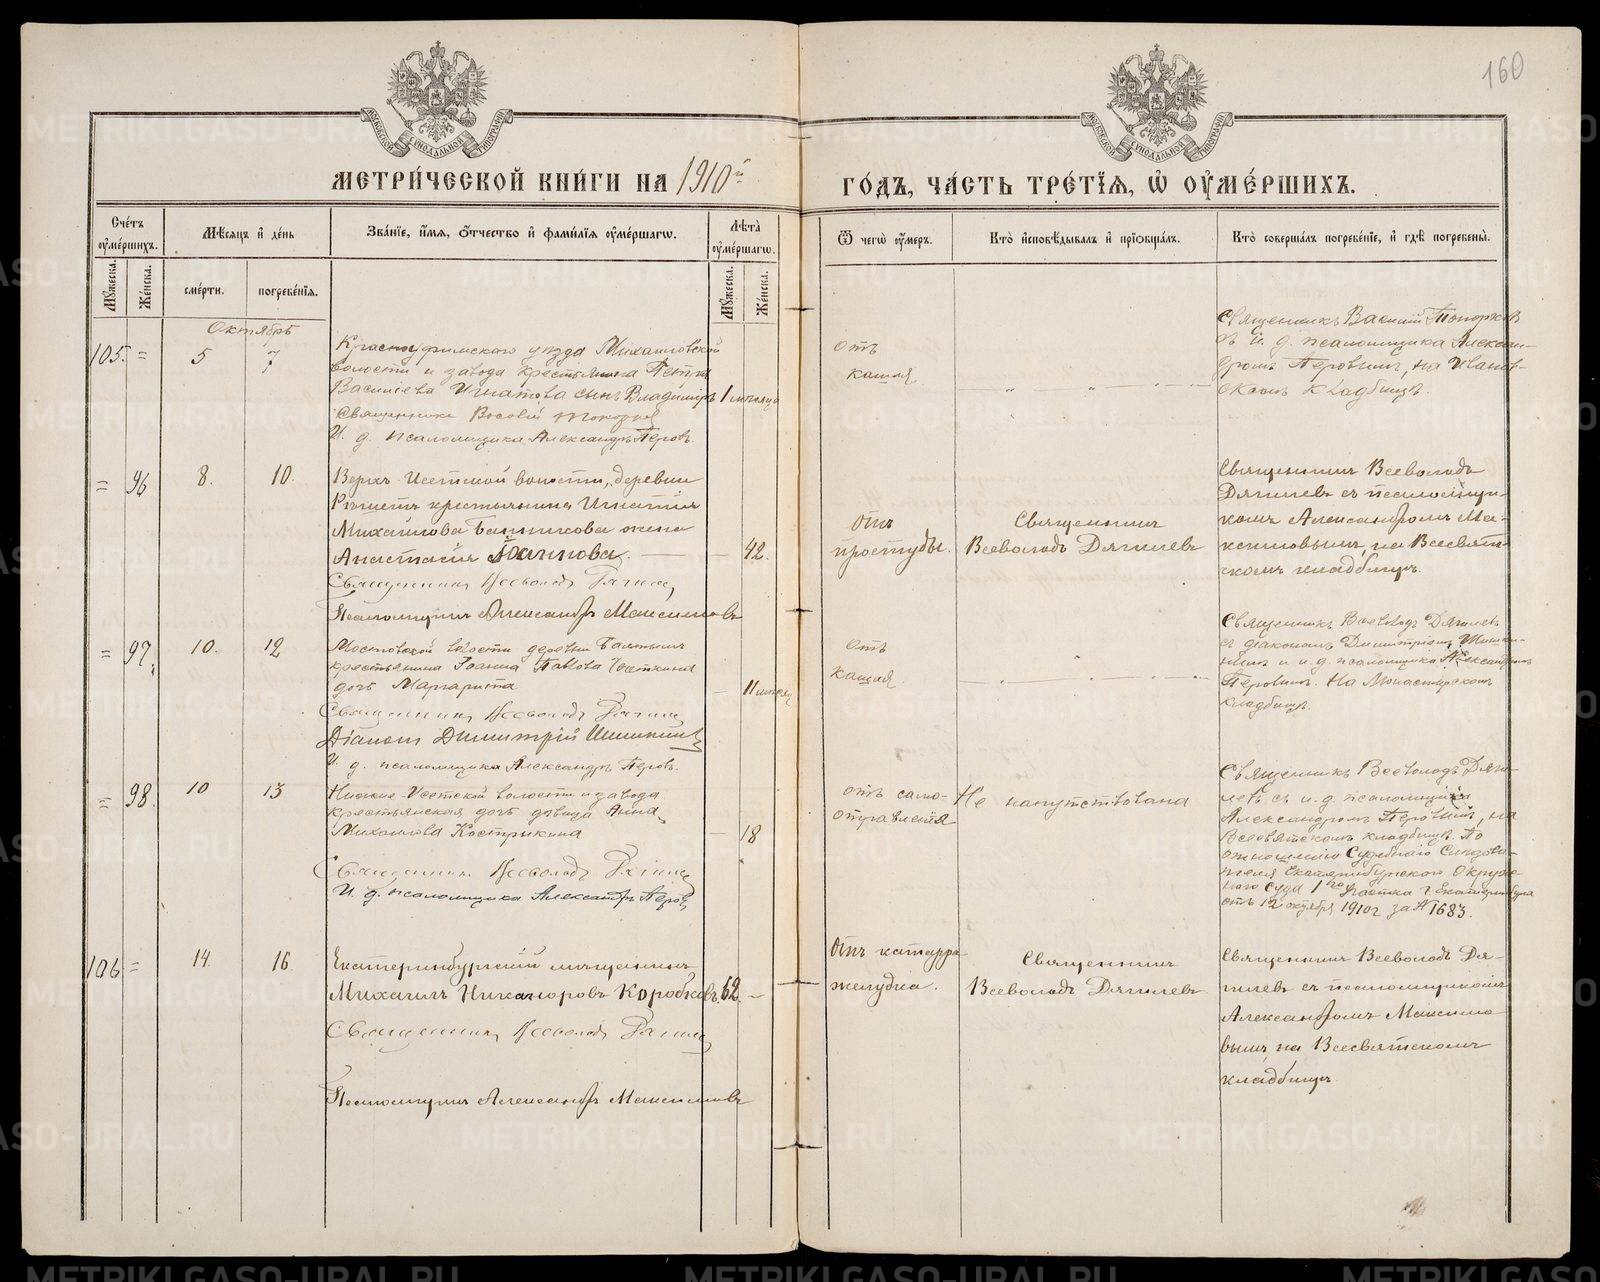 160
МЕТРИ́ЧЕСКОЙ КНИ́ГИ НА 1910й ГО́ДЪ, ЧА́СТЬ ТРЕ́ТЇѦ, Ѡ҆ ОУ҆МЕ́РШИХЪ.
Сче́тъ оу҆ме́ршихъ.
Мꙋжеска.
Же́нска.
Мѣ́сѧцъ и҆ де́нь
сме́рти.
погребе́нїѧ.
Зва́нїе, и҆́мѧ, ѻ҆́тчество и҆ фами́лїѧ оу҆ме́ршагѡ.
Лѣ́та оу҆ме́ршагѡ.
Мꙋжеска.
Же́нска.
Ѿ чегѡ̀ оу҆́меръ.
Кто̀ и҆сповѣ́дывалъ и҆ прїѡбща́лъ.
Кто̀ соверша́лъ погребе́нїе, и҆ гдѣ̀ погребены̀.
Октябрь
105. = 5 7
Красноуфимскаго уѣзда Михайловской
волости и завода крестьянина Петра
Васильева Игнатова сынъ Владимиръ 1 мѣсяца
Священникъ Топорковъ
И. д. псаломщика Александръ Перовъ.
отъ
кашля
Священникъ Василій Топорков
ъ и. д. псаломщика Алексан-
дромъ Перовымъ, на Иванов-
скомъ кладбищѣ.
= 96 8. 10.
Верхъ-Исетской волости, деревни
Рѣшетъ крестьянина Игнатія
Михайлова Банникова жена
Анастасія Іоаннова. — — 42.
Священникъ Всеволодъ Дягилевъ
Псаломщикъ Александръ Максимовъ
отъ
простуды.
Священникъ
Всеволодъ Дягилевъ
Священникъ Всеволодъ
Дягилевъ съ псаломщи-
комъ Александромъ Ма-
ксимовымъ, на Всесвят-
скомъ кладбищѣ.
= 97 10. 12
Мостовской волости деревни
крестьянина Іоанна Павлова
дочь Маргарита — 11 мѣсяц
Священникъ Всеволодъ Дягилевъ
Діаконъ Димитрій Шишкинъ
И. д. псаломщика Александръ Перовъ.
отъ
кашля.
Священникъ Всеволодъ Дягилевъ
съ діакономъ Димитріемъ Шишки-
нымъ и и. д. псаломщика Александромъ
Перовымъ. На Монастырскомъ
кладбищѣ.
= 98. 10 13
Нижне-Исетской волости и завода
крестьянская дочь дѣвица Анна
Михайлова Кострыкина — 18
Священникъ Всеволодъ Дягилевъ
И. д. псаломщика Александръ Перовъ
отъ само-
отравленія
Не напутствована
Священникъ Всеволодъ Дяги-
левъ съ и. д. псаломщика
Александромъ Перовымъ, на
Всесвятскомъ кладбищѣ. По
отношенію Судебнаго Слѣдова-
теля Екатеринбургскаго Окруж-
наго Суда 1го участка г. Екатеринбурга
отъ 12 октября 1910г за № 1683.
106 = 14. 16
Екатеринбургскій мѣщанинъ
Михаилъ Никаноровъ Коробковъ 62 —
Священникъ Всеволодъ Дягилевъ
Псаломщикъ Александръ Максимовъ
Отъ катарра
желудка.
Священникъ
Всеволодъ Дягилевъ
Священникъ Всеволодъ Дя-
гилевъ съ псаломщикомъ
Александромъ Максимо
вымъ, на Всесвятскомъ
кладбищѣ